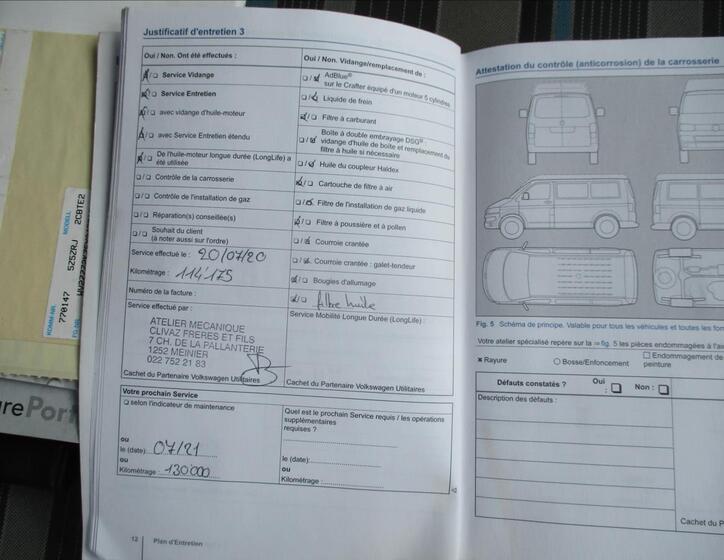 Justificatif d'entretien 3
Oui / Non. Ont été effectués :
☐ Service Vidange
☐ Service Entretien
☐ avec vidange d'huile-moteur
☐ avec Service Entretien étendu
☐ De l'huile-moteur longue durée (LongLife) a
été utilisée
☐/☐ Contrôle de la carrosserie
☐/☐ Contrôle de l'installation de gaz
☐/☐ Réparation(s) conseillée(s)
☐/☐ Souhait du client
(à noter aussi sur l'ordre)
Service effectué le : 20/07/20
Kilométrage : 114'175
Numéro de la facture :
Service effectué par :
ATELIER MECANIQUE
CLIVAZ FRERES ET FILS
7 CH. DE LA PALLANTERIE
1252 MEINIER
022 752 21 83
Cachet du Partenaire Volkswagen Utilitaires
Oui / Non. Vidange/remplacement de :
AdBlue®
sur le Crafter équipé d'un moteur 5 cylindres
Liquide de frein
Filtre à carburant
Boîte à double embrayage DSG® :
vidange d'huile de boîte et remplacement du
filtre à huile si nécessaire
Huile du coupleur Haldex
Cartouche de filtre à air
Filtre de l'installation de gaz liquide
Filtre à poussière et à pollen
Courroie crantée
Courroie crantée : galet-tendeur
Bougies d'allumage
filtre huile
Service Mobilité Longue Durée (LongLife) :
Cachet du Partenaire Volkswagen Utilitaires
Votre prochain Service
☐ selon l'indicateur de maintenance
ou
le (date): 07/21
ou
Kilométrage : 130'000
Quel est le prochain Service requis / les opérations
supplémentaires
requises ?
le (date):
ou
Kilométrage :
12 Plan d'Entretien
Attestation du contrôle (anticorrosion) de la carrosserie
Fig. 5 Schéma de principe. Valable pour tous les véhicules et toutes les
Votre atelier spécialisé repère sur la ⇒ fig. 5 les pièces endommagées à
✖ Rayure
○ Bosse/Enfoncement
☐ Endommagement de
peinture
Défauts constatés ?
Oui : ☐
Non : ☐
Description des défauts :
Cachet du P
MODELL
2CBTE2
5Z5ZRJ
KOMM-NR.
770147